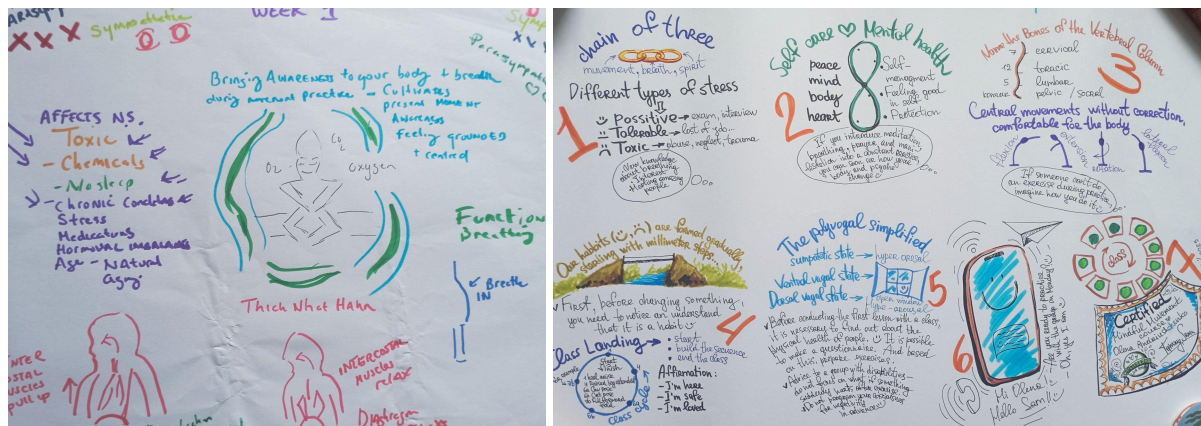 WEEK 1
Sympathetic
XXX
Parasympathetic
Bringing AWARENESS to your body + breath
during internal practice - Cultivates
present moment
Awareness
feeling grounded
+ centred
AFFECTS N.S.
Toxic
- Chemicals
- No sleep
- Chronic Conditions
Stress
Medications
Hormonal imbalance
Age - Natural
aging
CO2
O2
Oxygen
Function
Breathing
Breath
IN
Thich Nhat Hahn
INTERCOSTAL
MUSCLES
relax
MUSCLES
pull up
Diaphragm
chain of three
movement, breath, spirit
Different types of stress
1
Possitive → exam, interview
Tolerable → lost of job...
Toxic → abuse, neglect, trauma
New knowledge
about breathing
+ Interest
people
Self care ♡ Mental health
2
peace
mind
body
heart
Self-
managment
• Feeling good
in self
• Protection
If you introduce meditation
breathing, prayer, and
into a constant practice,
you can soon see how your
body and psyche
change
Name the Bones of the Vertebral Column
3
7 cervical
12 toracic
5 lumbar
pelvic / sacral
Central movements without correction,
comfortable for the body
flexion
extension
rotation
lateral
flexion
If someone can't do
an exercise during practice,
imagine how you do it
Our habbits are formed gradually,
steading with millimeter steps...
4
✓ First, before changing something,
you need to notice an understand
that it is a habit
Class Landing
• start
• build the sequence
• end the class
class cycle
Start
Finish
Affirmation:
- I'm here
- I'm safe
- I'm loved
The polyvagal simplified
5
sumpatetic state → hyper-arousal
Ventral vagal state →
Dorsal vagal state →
open window
Hypo-arousal
✓ Before conducting the first lesson with a class,
it is necessary to find out about the
physical health of people. It is possible
to make a questionnaire. And based
on this prepare exercises.
✓ Advice to a group with disabilities -
do not focus on what if something
suddenly hurts while exercise.
Do not program your consciousness
for negativity
in advance
6
Are you ready to practice
with the group on Monday?
- Oh, yes I am
Hi Olena!
Hello Sam!!
7
class
Certified
Mindful Movement
Olena